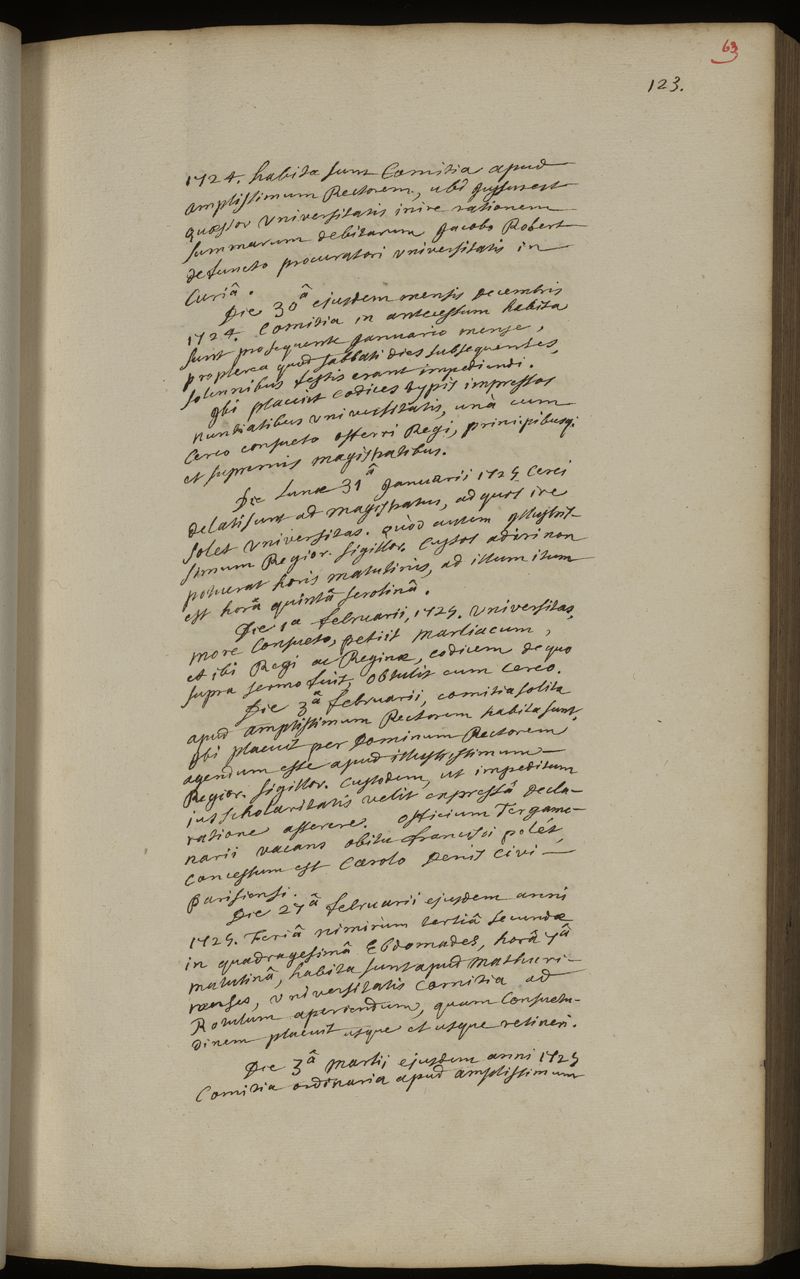 63
123.
1724. habita sunt Comitia apud
amplissimum Rectorem, ubi jussus est
quæstor Universitatis inire rationem
summarum debitarum Jacobo Robert
defuncto procuratori Universitatis in
Curiâ.
Die 30â ejusdem mensis Decembris
1724. Comitia in antecessum habita
sunt pro sequente Januario mense,
propterea quod sabbati dies subsequentes,
solemnibus festis erant impediendi.
Ibi placuit codices typis impressos
nuntiatibus universitatis, unà cum
Cereo consueto offerri Regi, principibusq;
et supremis magistratibus.
Die Lunæ 31â Januarii 1725 Cerei
delati sunt ad magistratus, ad quos ire
solet Universitas. Quòd autem Illustris-
simum Regior. Sigillor. Custos adiri non
potuerat horis matutinis, ad illum itum
est horâ quintâ serotinâ.
Die 1a februarii, 1725. Universitas,
more Consueto, petiit Marliacum,
et ibi Regi ac Reginæ, codicem de quo
supra sermo fuit, obtulit cum cereo.
Die 3â februarii, comitia solita
apud amplissimum Rectorem habita sunt,
Ibi placuit per Dominum Rectorem
agendum esse apud illustrissimum
Regior. Sigillor. Custodem, ut impeditum
jus scholaritatis velit expressâ decla-
ratione asserere. Officium Pergame-
narii vacans obitu francisci polét,
concessum est Carolo Denis Civi
Parisiensi.
Die 27â februarii ejusdem anni
1725. Feriâ nimirum tertiâ secundæ
in quadragesimâ Ebdomades, horâ 7â
matutinâ, habita sunt apud Mathuri-
nenses, Universitatis Comitia ad
Rotulum aperiendum, quam Consuetu-
dinem placuit usque et usque retineri.
Die 3â Martij ejusdem anni 1725
Comitia ordinaria apud amplissimum